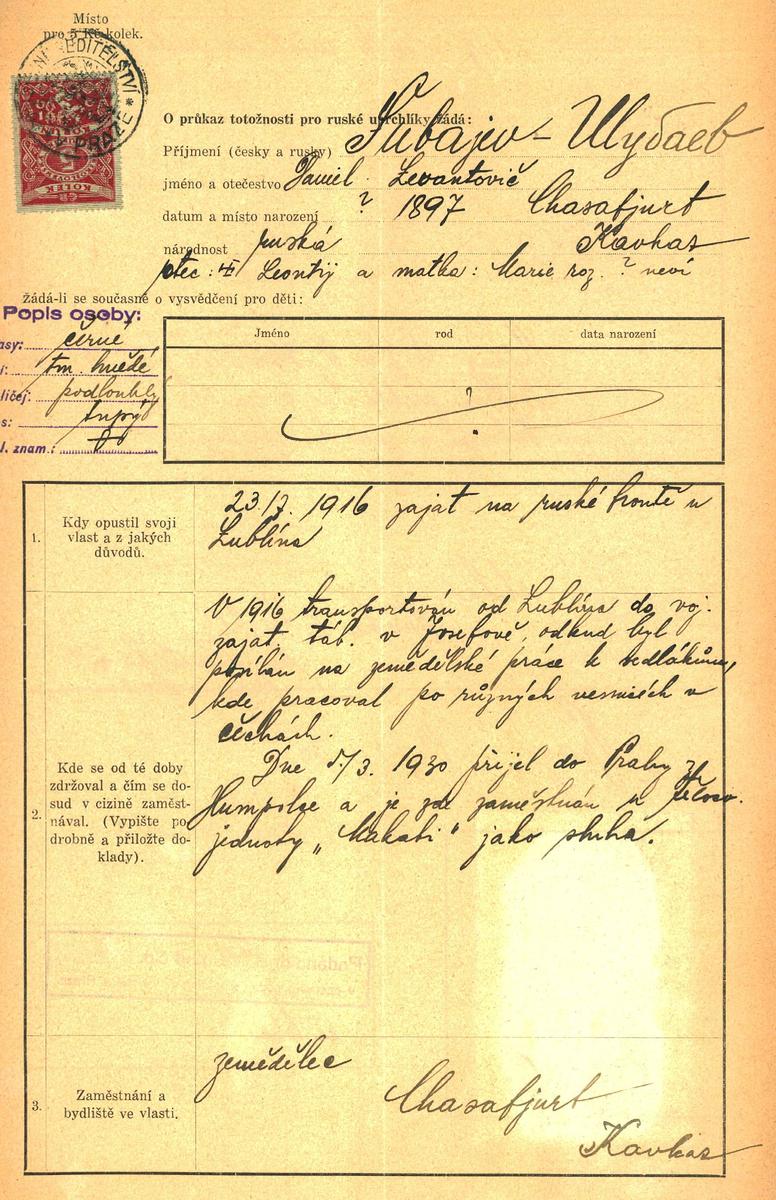 Místo
pro 5 Kč kolek.
ŘEDITELSTVÍ
PRAZE
KOLEK
O průkaz totožnosti pro ruské uprchlíky žádá:
Příjmení (česky a rusky) Šubajev - Шубаев
jméno a otečestvo Daniel Levantovič
datum a místo narození ? 1897 Chasafjurt
národnost ruská Kavkaz
otec: Leontij a matka: Marie roz. ? neví
žádá-li se současně o vysvědčení pro děti:
Popis osoby:
Jméno rod data narození
asy: černé
í: tm. hnědé
ličej: podlouhlý
s: tupý
l. znam.:
1. Kdy opustil svoji
vlast a z jakých
důvodů.
23./7. 1916 zajat na ruské frontě u
Lublína
2. Kde se od té doby
zdržoval a čím se do-
sud v cizině zaměst-
nával. (Vypište po-
drobně a přiložte do-
klady).
V 1916 transportován od Lublína do voj.
zajat. táb. v Josefově, odkud byl
posílán na zemědělské práce k sedlákům,
kde pracoval po různých vesnicích v
Čechách.
Dne 5./3. 1930 přijel do Prahy z
Humpolce a je zde zaměstnán u tělocv.
jednoty „Makabi" jako sluha.
3. Zaměstnání a
bydliště ve vlasti.
zemědělec
Chasafjurt
Kavkaz